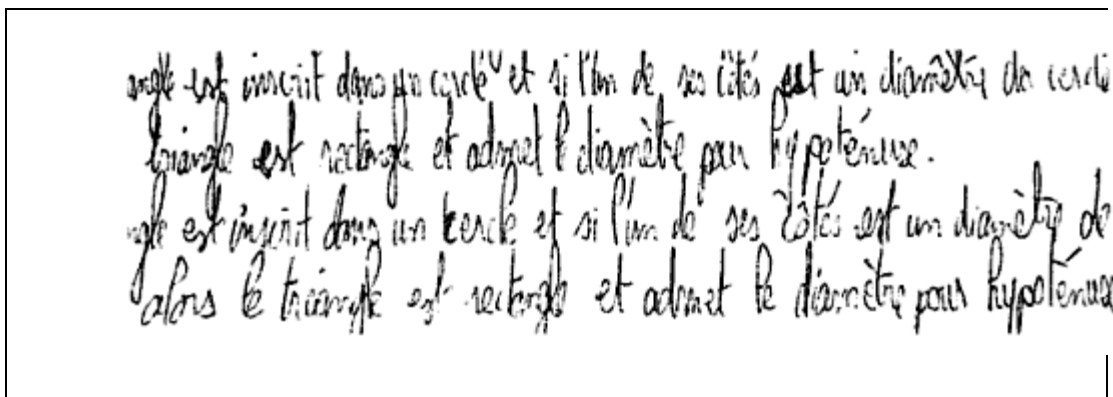 angle est inscrit dans un cercle et si l'un de ses côtés est un diamètre du cercle
triangle est rectangle et admet le diamètre pour hypoténuse.
ngle est inscrit dans un cercle et si l'un de ses côtés est un diamètre de
alors le triangle est rectangle et admet le diamètre pour hypoténuse